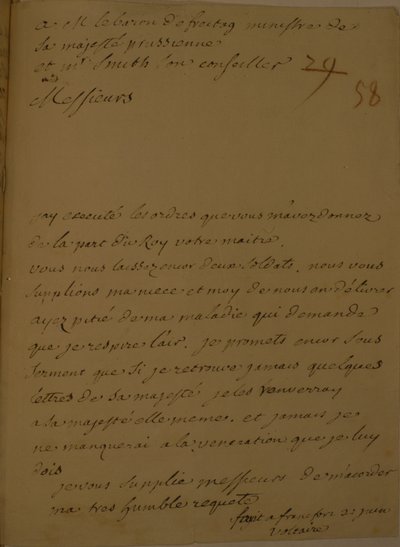 a M le baron de freitag ministre de
sa majesté prussienne
et mr Smith son conseiller 29
58
Messieurs
jay executé les ordres que vous m'avez donnez
de la part du Roy votre maitre.
vous nous laissez encor deux soldats. nous vous
supplions ma niece et moy de nous en délivrer
ayez pitié de ma maladie qui demande
que je respire l'air. je promets encor sous
serment que si je retrouve jamais quelques
lettres de sa majesté je les renverray
a sa majesté elle meme. et jamais je
ne manquerai a la veneration que je luy
dois
je vous supplie messieurs de m'acorder
ma tres humble requete
fait a francfort juin
Voltaire